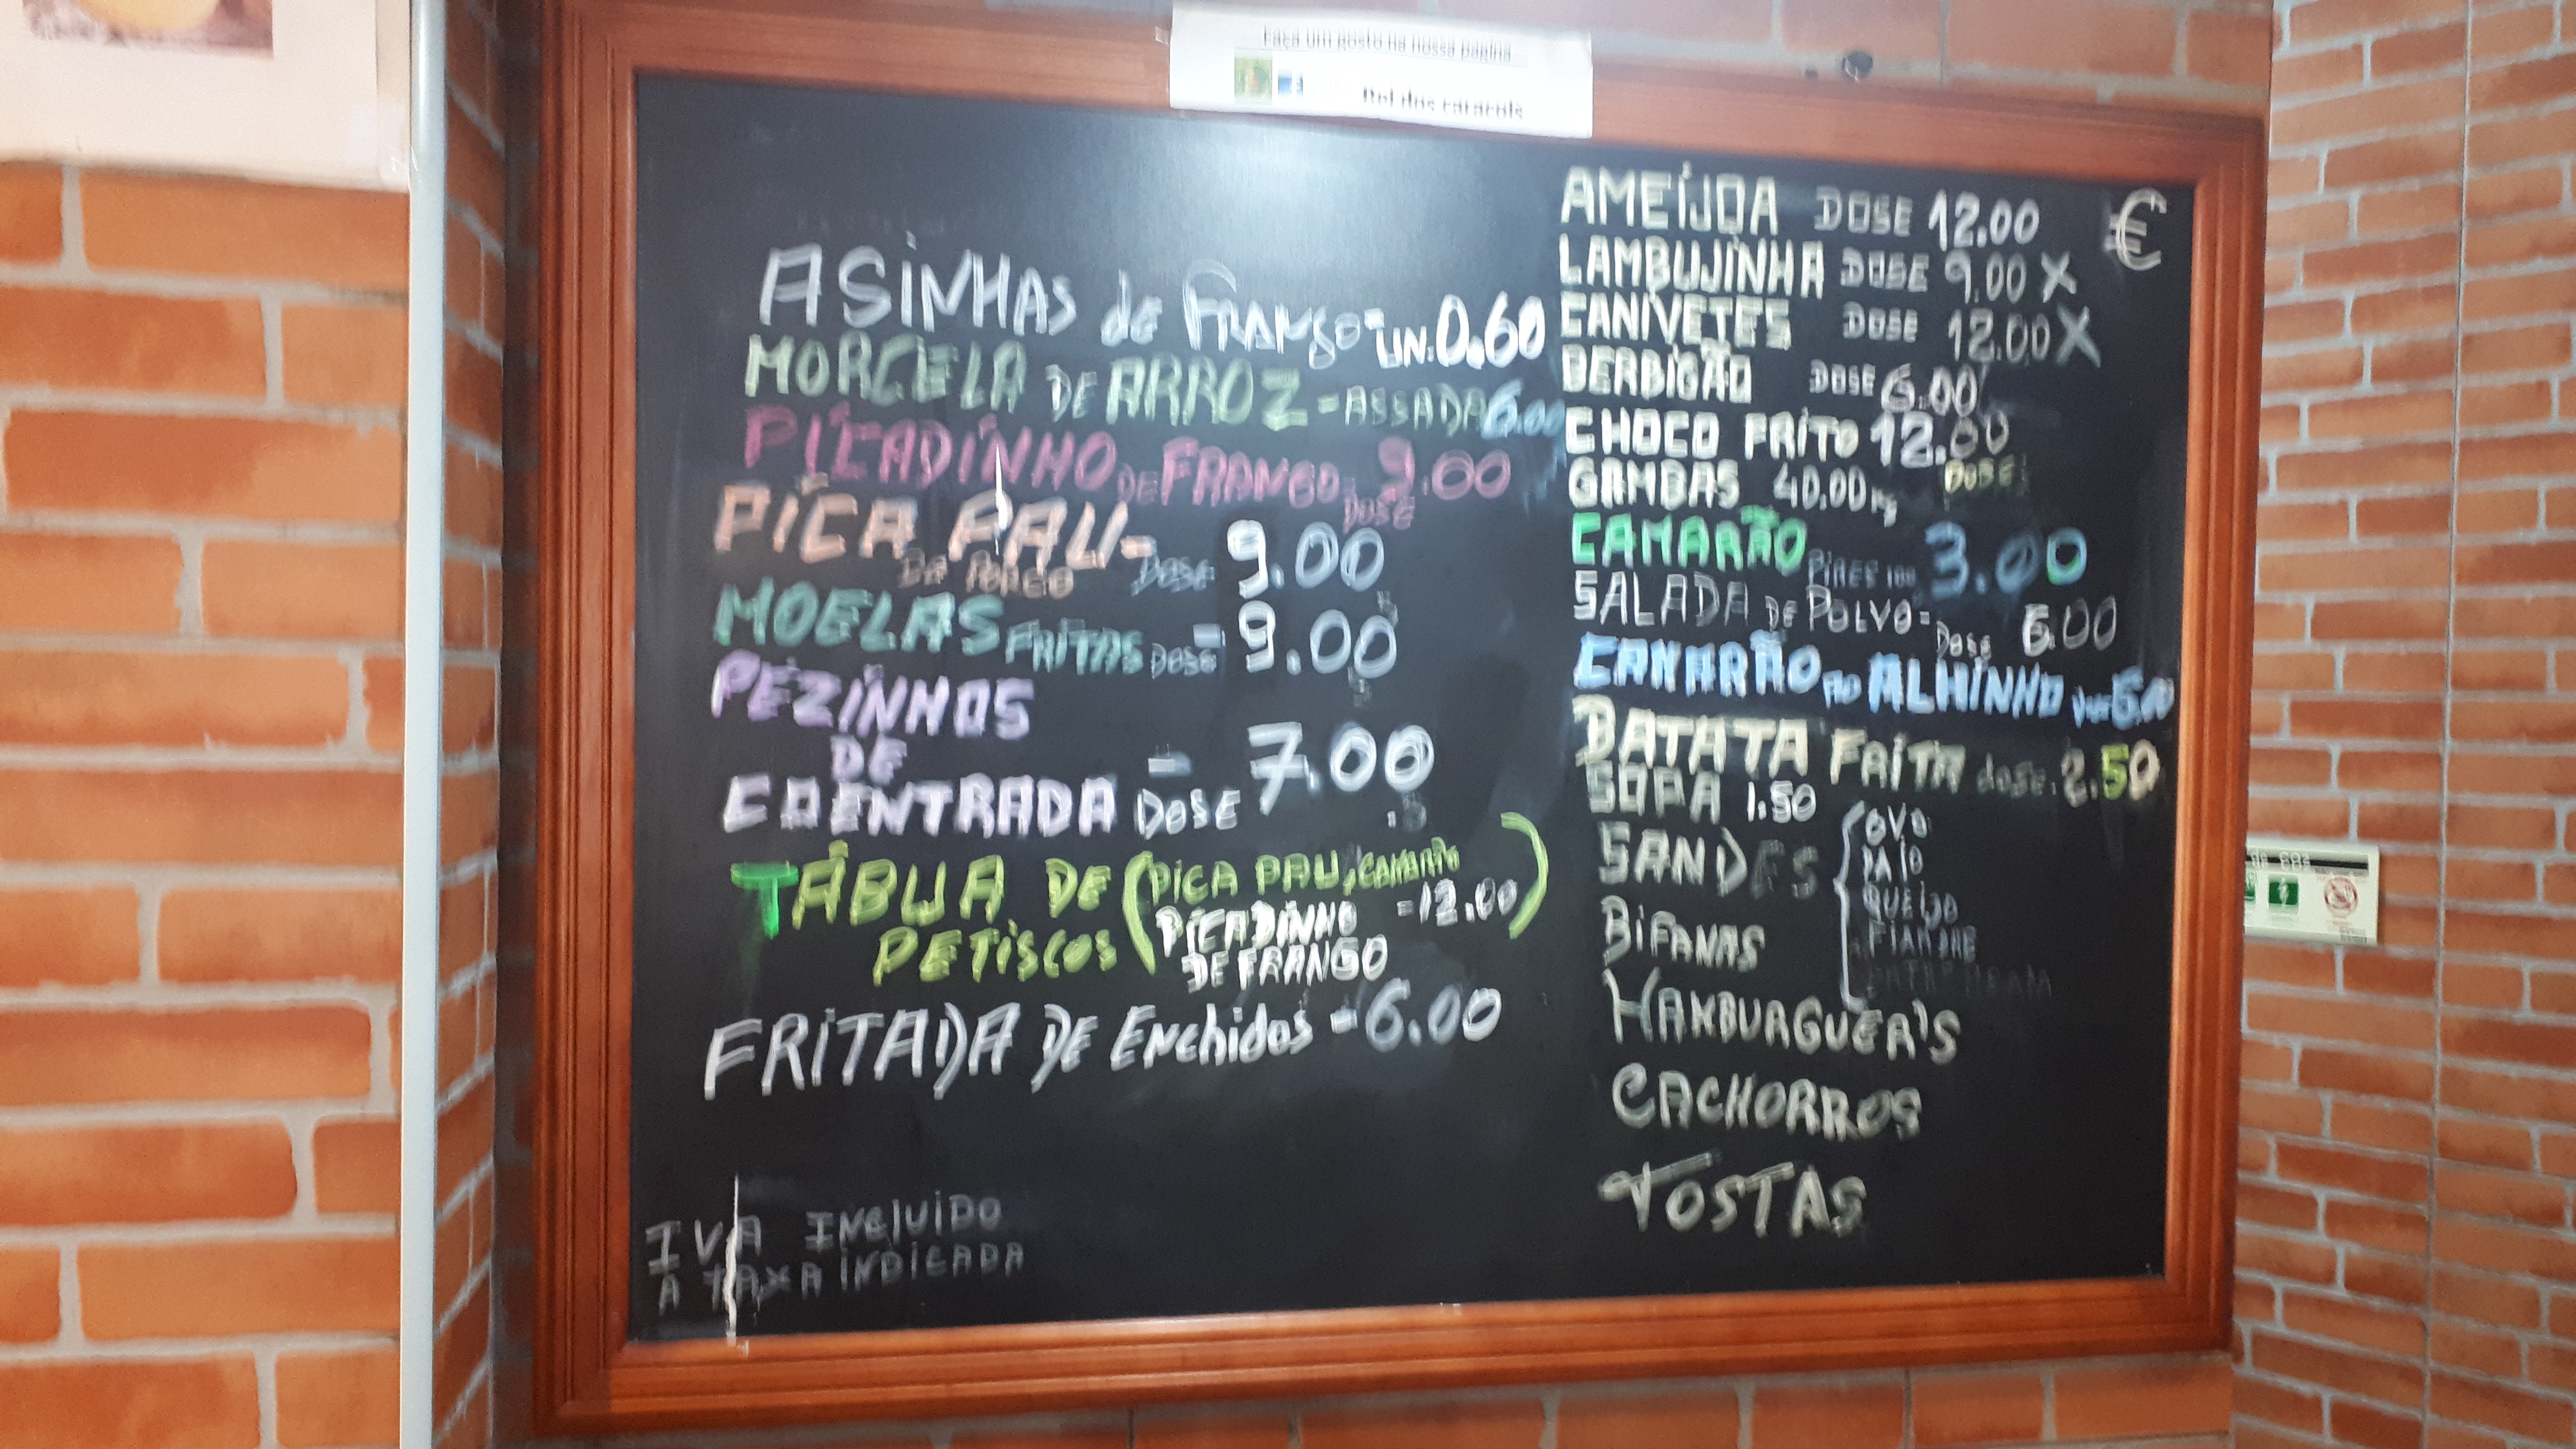 Faça um gosto na nossa página
Rei dos caracois
ASINHAS de FRANGO - UN. 0.60
MORCELA DE ARROZ - ASSADA 6.00
PICADINHO DE FRANGO - DOSE 9.00
PICA PAU - DOSE 9.00
DE PORCO
MOELAS FRITAS DOSE - 9.00
PEZINHOS
DE
COENTRADA DOSE - 7.00
TÁBUA DE PETISCOS (PICA PAU, CAMARÃO
PICADINHO DE FRANGO = 12.00)
FRITADA DE Enchidos - 6.00
IVA INCLUIDO
A TAXA INDICADA
€
AMEIJOA DOSE 12.00
LAMBUJINHA DOSE 9.00 X
CANIVETES DOSE 12.00 X
BERBIGÃO DOSE 6.00
CHOCO FRITO 12.00
DOSE
GAMBAS 40.00 Kg
CAMARÃO PIRES 100 3.00
SALADA DE POLVO = DOSE 6.00
CAMARÃO AO ALHINHO
BATATA FRITA dose. 2.50
SOPA 1.50
SANDES { OVO
PAIO
QUEIJO
FIAMBRE
BIFANAS
HAMBURGUER'S
CACHORROS
TOSTAS